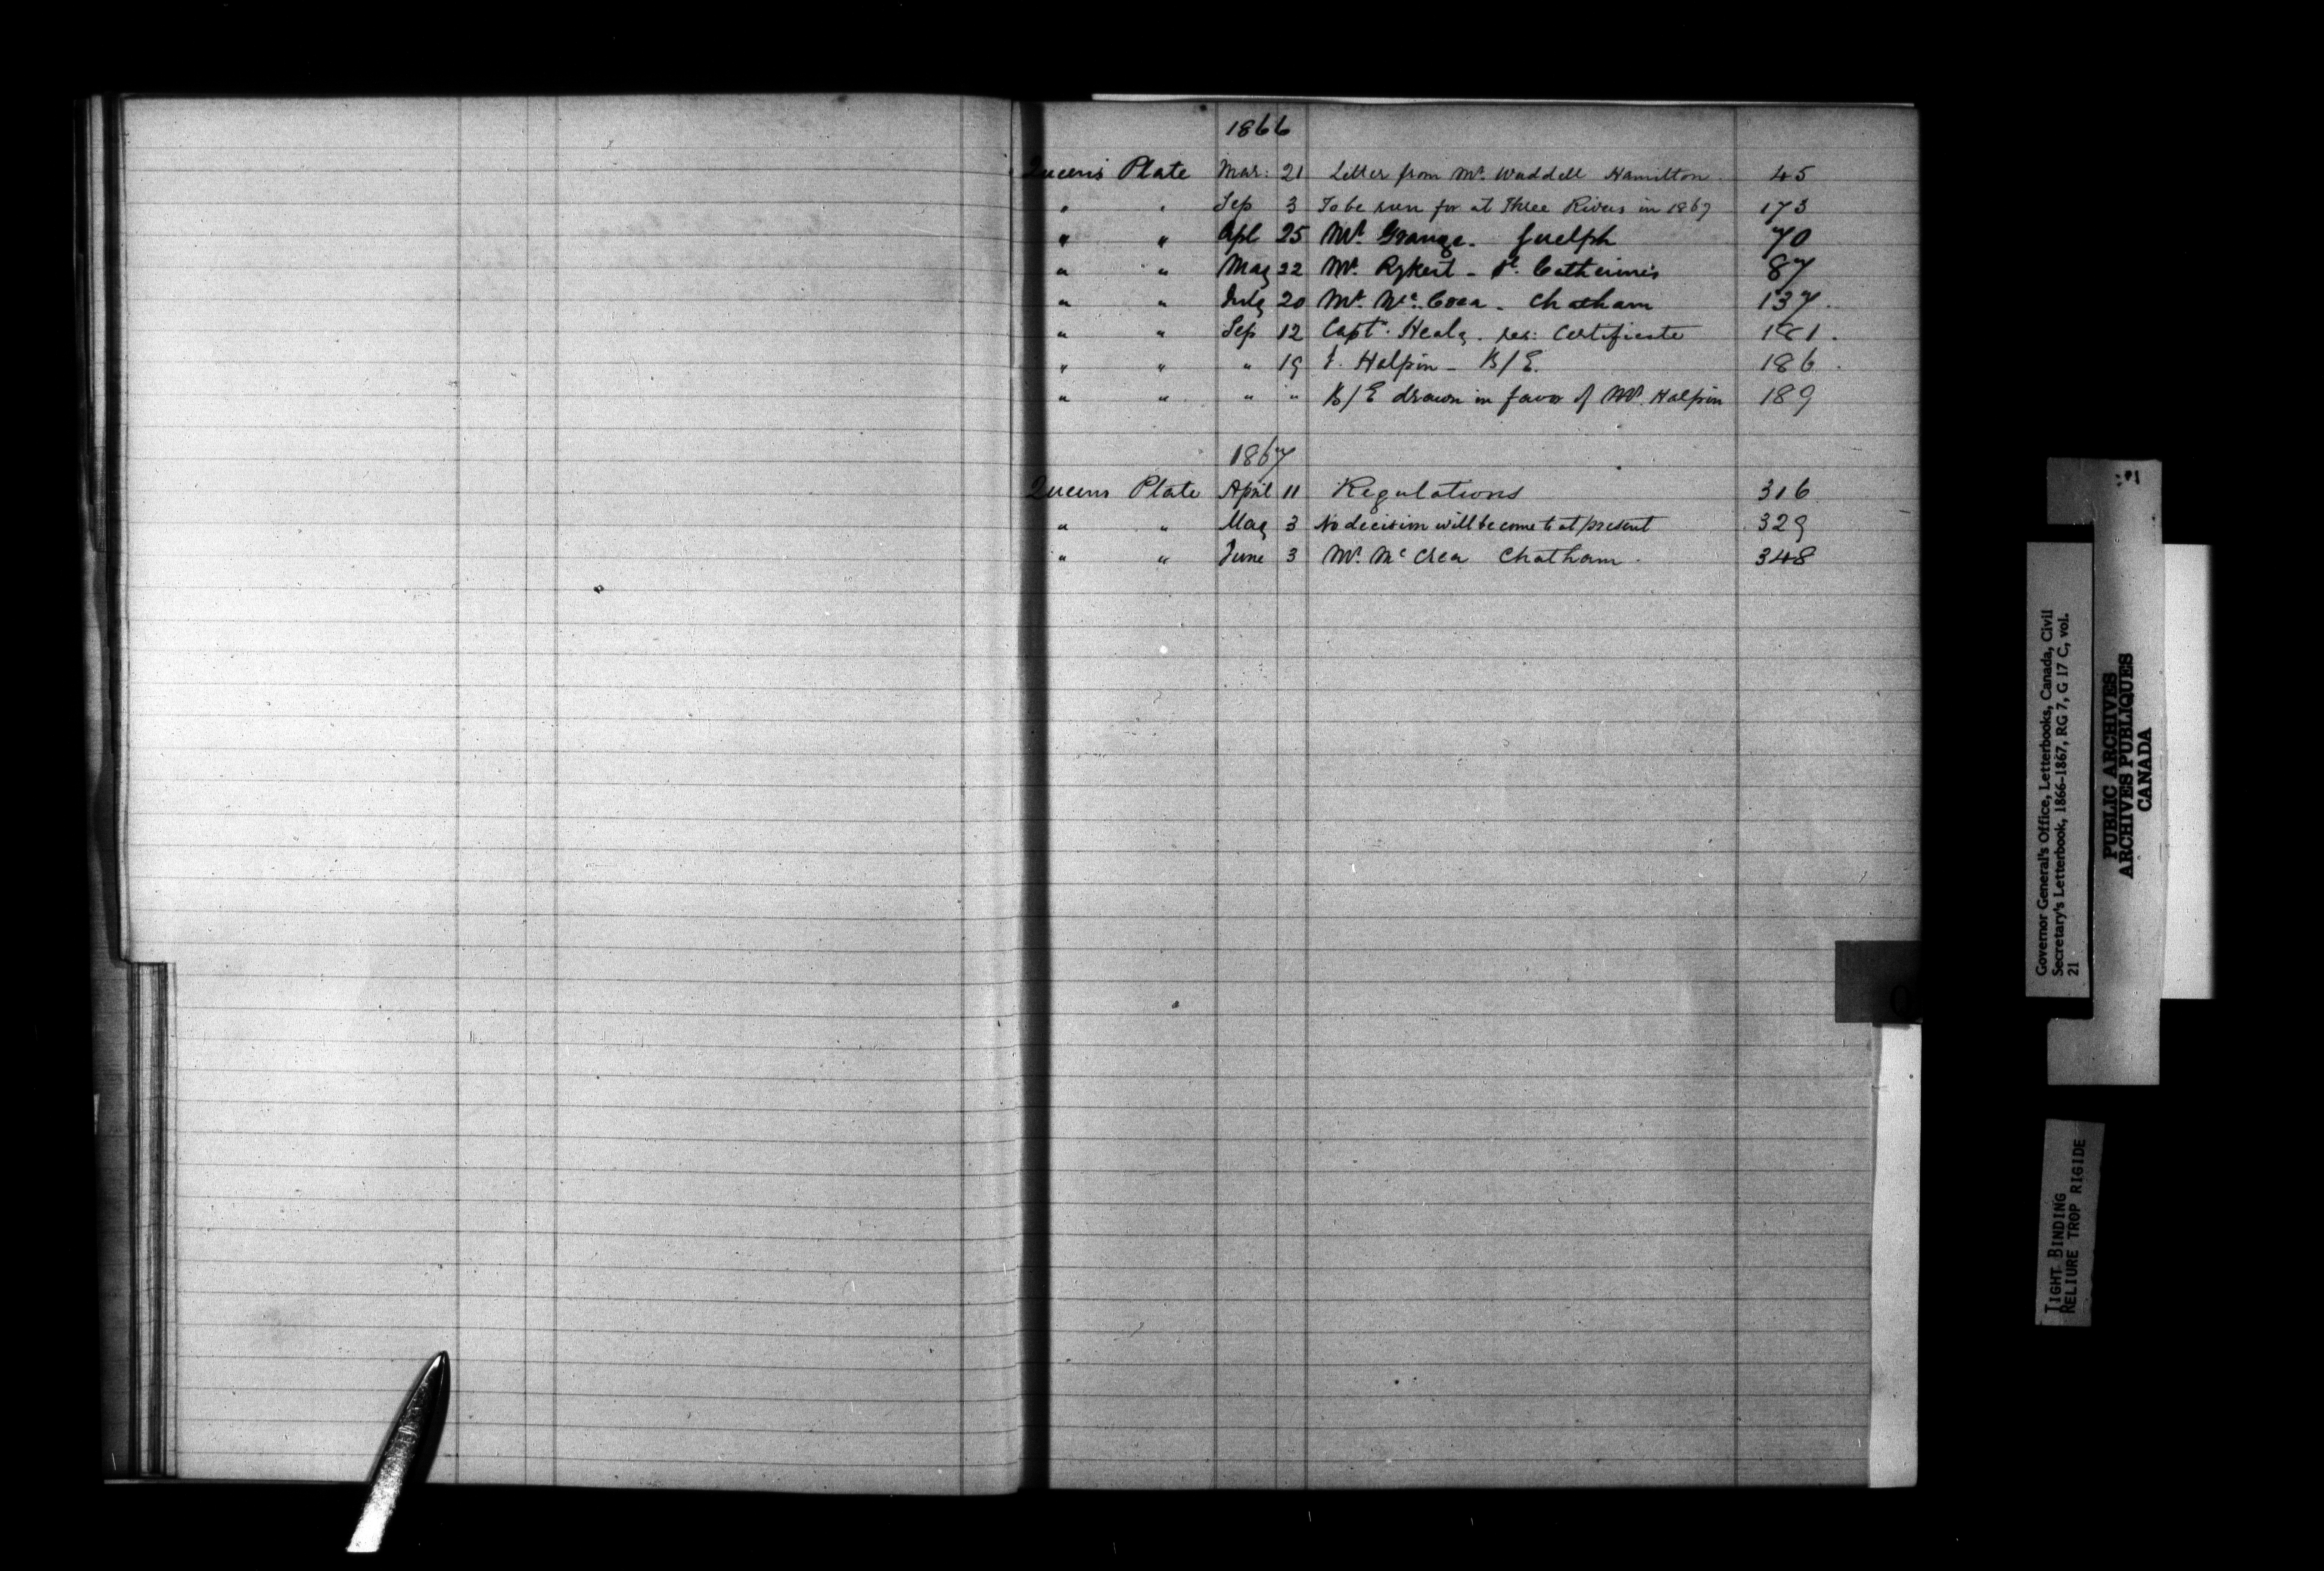 1866
Queen's Plate Mar: 21 Letter from Mr. Waddell Hamilton. 45
" " Sep 3 To be run for at Three Rivers in 1867 173
" " Apl 25 Mr. Grange - Guelph 70
" " May 22 Mr. Rykert - St. Catherines 87
" " July 20 Mr. McCrea - Chatham 137.
" " Sep 12 Capt. Healy. res: Certificate 181.
" " " 19 Halpin - B/E. 186.
" " " " B/E drawn in favor of Mr. Halpin 189
1867
Queens Plate April 11 Regulations 316
" " May 3 No decision will be come to at present 329
" " June 3 Mr. McCrea Chatham. 348
Q
Governor General's Office, Letterbooks, Canada, Civil
Secretary's Letterbook, 1866-1867, RG 7, G 17 C, vol.
21
PUBLIC ARCHIVES
ARCHIVES PUBLIQUES
CANADA
TIGHT BINDING
RELIURE TROP RIGIDE